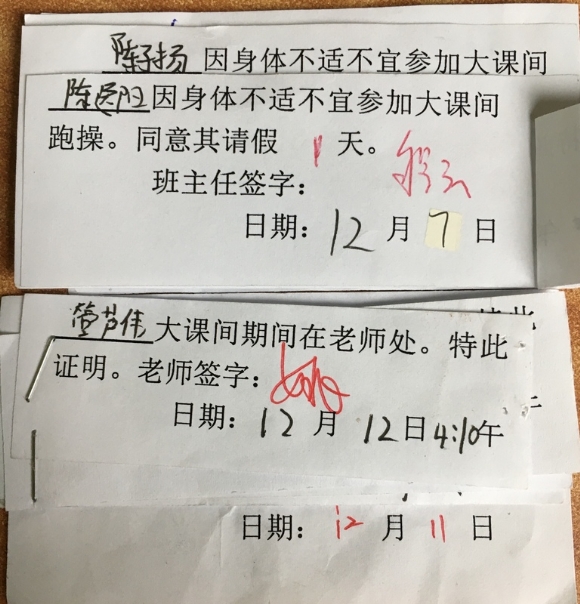 陈子扬因身体不适不宜参加大课间
因身体不适不宜参加大课间
跑操。同意其请假 1 天。
班主任签字：
日期：12 月 7 日
大课间期间在老师处。特此
证明。老师签字：
日期：12 月 12 日 4:10午
日期：12 月 11 日